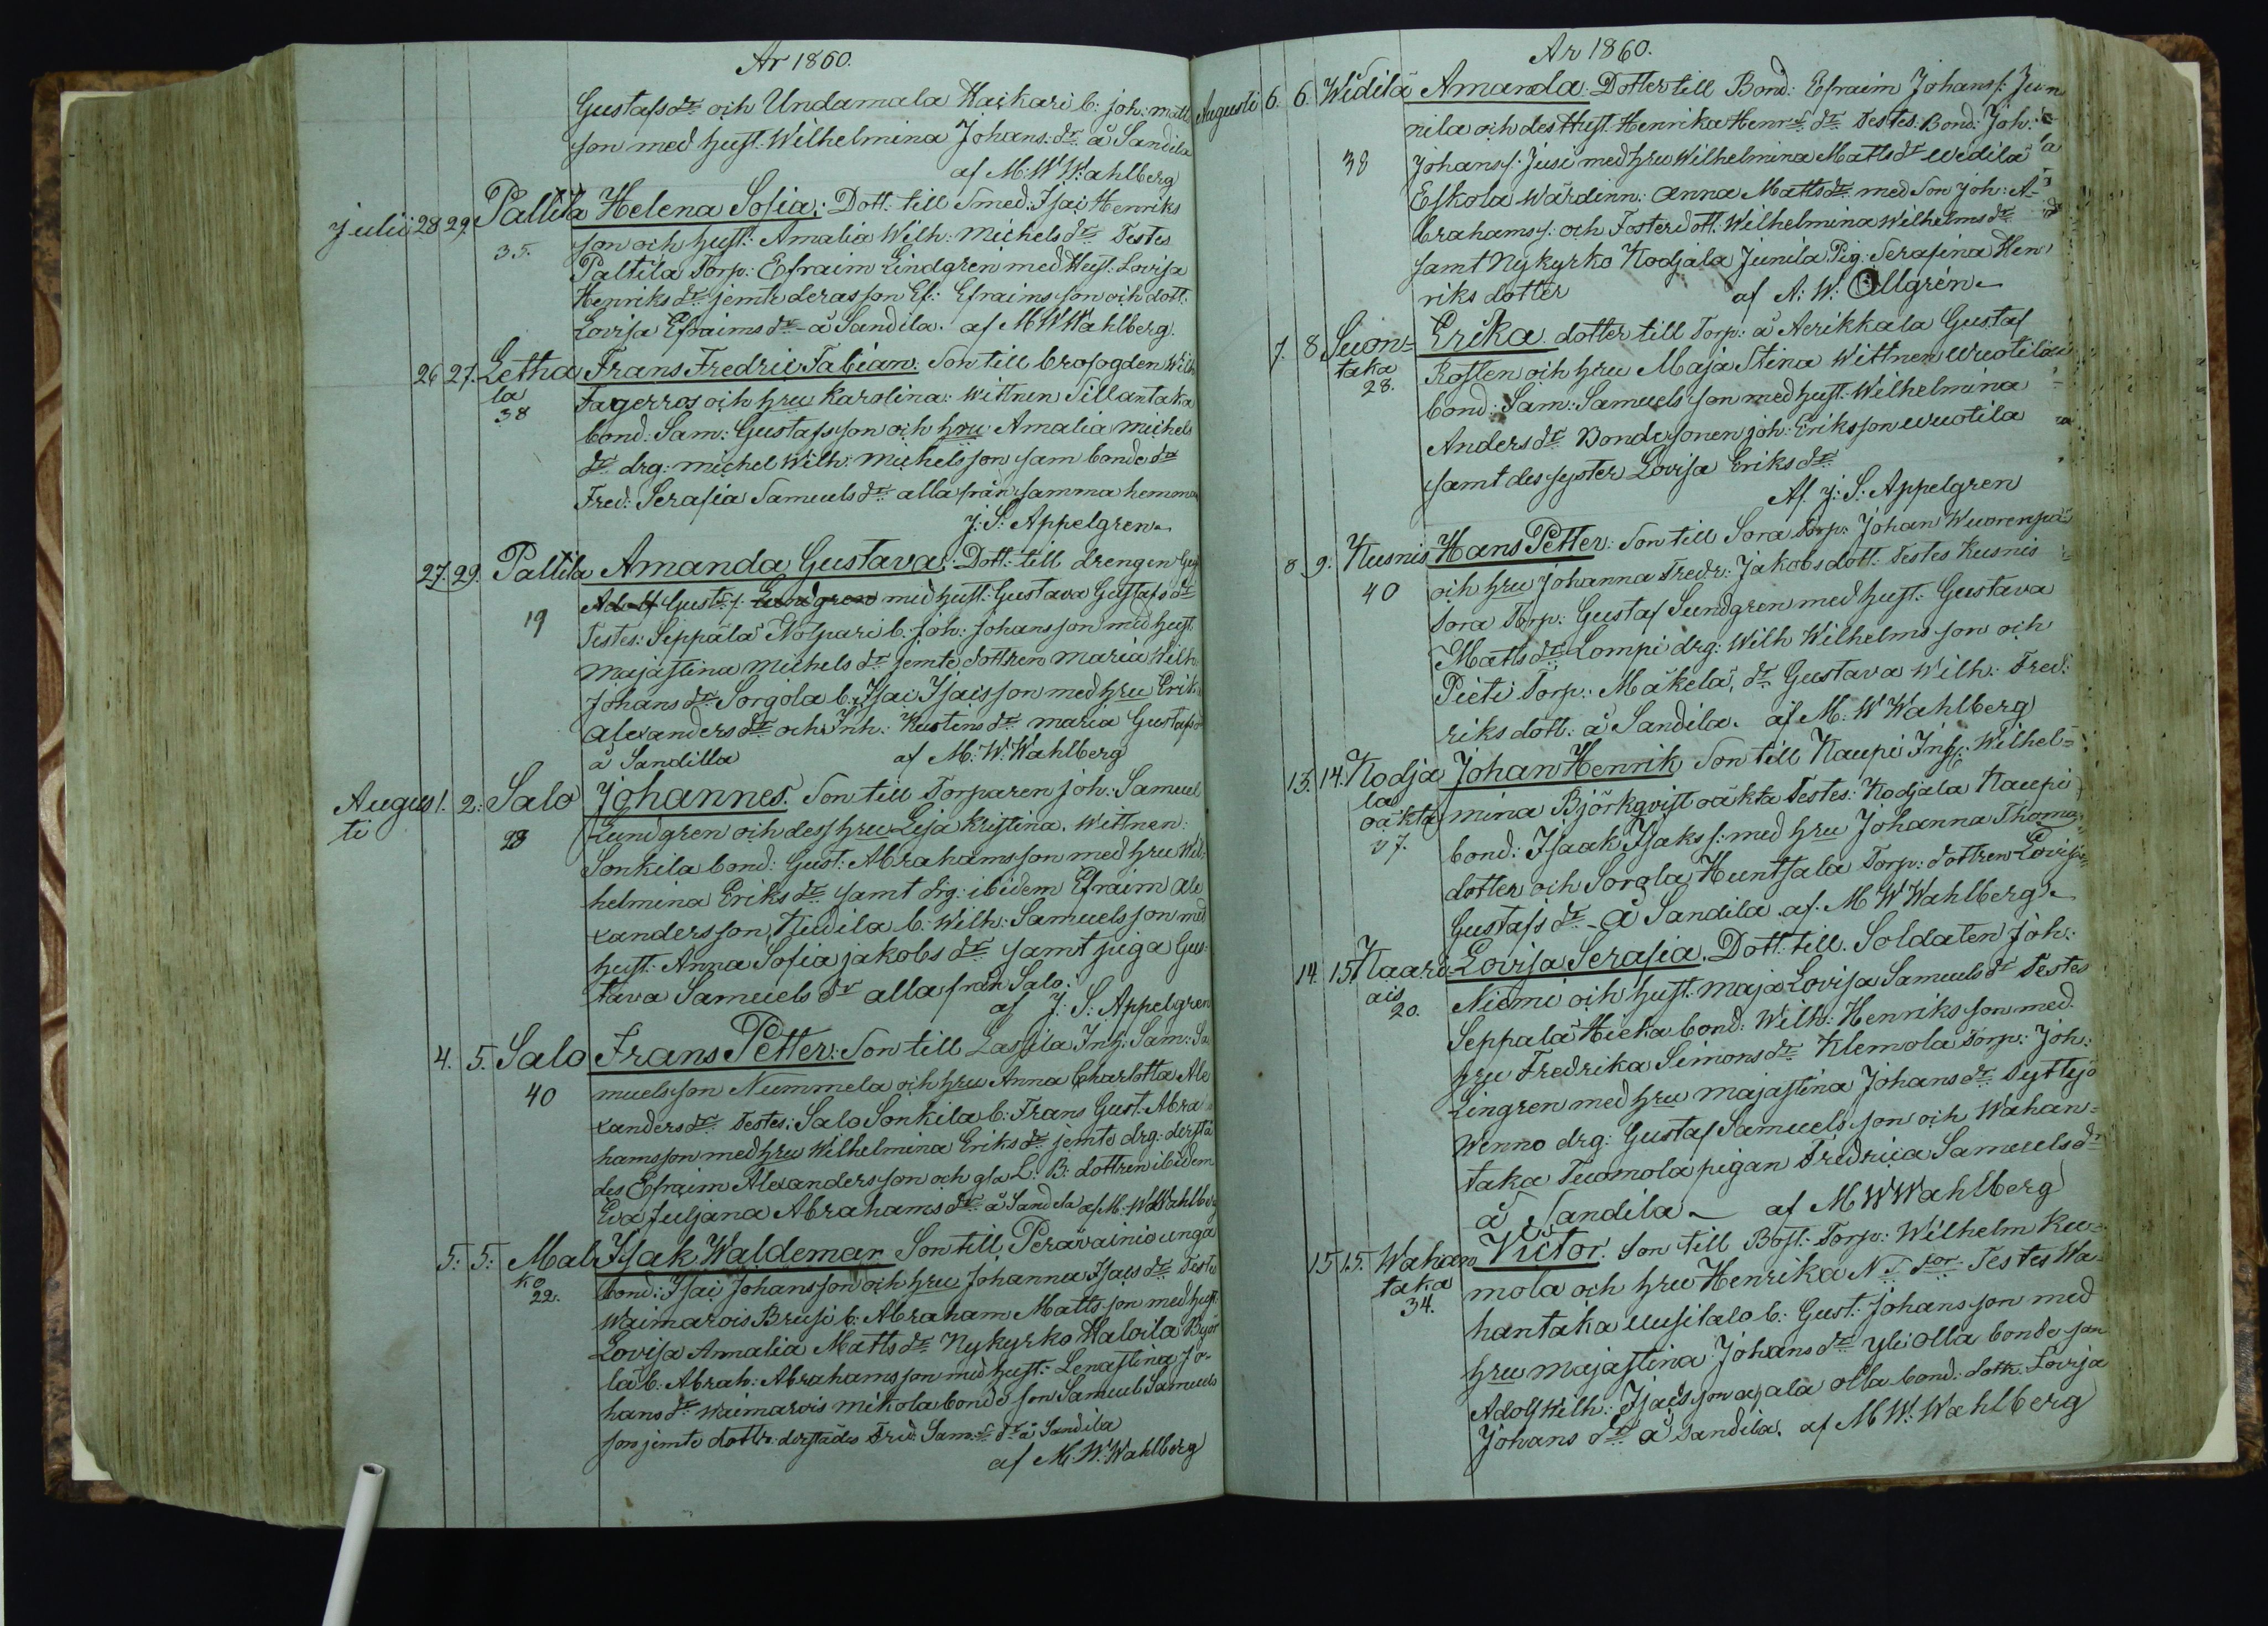 Ar 1860.
Gustafsdr och Undamala Haikari b: Joh: Matts
son med hust: Wilhelmina Johans: dr å Sandila
af M: W Wahlberg
Julii 28 29. Paltila Helena Sofia: Dott: till Smed: Isai Henriks
35. son och hust: Amalia Wilh: Michels dr Testes
Paltila Torp: Efraim Lindgren med Hust: Lovisa
Henriks dr jemte deras son Ef: Efraimsson och dott:
Lovisa Efraims dr å Sandila. af M W Wahlberg.
26 27. Letha Frans Fredric Fabian: Son till brofogden Wilh
la Fagerros och hru Karolina: Wittnen Sillantaka
38 bond: Sam: Gustafsson och hru Amalia Michels
dr drg: Michel Wilh: Michelsson sam bonde dr
Fred: Serafia Samuels dr alla från samma hemman
J: S: Appelgren
27. 29. Paltila Amanda Gustava: Dott: till drengen
Adolf Gust: s. Lundgren med hust: Gustava Gustafs dr
19 Testes: Seppälä Nolpari b: Joh: Johansson med hust:
Majastina Michels dr jemte dottren Maria Wilh:
Johans dr Sorgola b: Isai Isaisson med hru Erik
Alexanders dr och Inh: Kustens dr Maria Gustafs
å Sandilla af M: W: Wahlberg
Augus 1. 2: Salo Johannes. Son till Torparen Joh: Samuel
ti 28 Lundgren och dess hru Lisa Kristina. Wittnen:
Sonkila bond: Gust: Abrahamsson med hru Wil:
helmina Eriks dr samt drg: ibidem Efraim Ale
xandersson, Hudila b: Wilh: Samuelsson med
hust: Anna Sofia Jakobs dr samt piga Gus:
tava Samuels dr alla från Salo:
af J: S: Appelgren
4. 5. Salo Frans Petter: Son till Lassila Inh: Sam: Sa
40 muelsson Nummela och hru Anna Charlotta Ale
xanders dr Testes: Salo Sonkila b: Frans Gust: Abra
hamsson med hru Wilhelmina Eriks dr jemte drg: derstä
des Efraim Alexandersson och gla L: B: dottren ibidem
Eva Juljana Abrahams dr å Sandila af M: W Wahlberg
5: 5: Mal Isak Waldemar. Son till Peravainio unga
ko bond: Isai Johansson och hru Johanna Isais dr Teste
22. Waimarois Brusi b: Abraham Mattsson med hust:
Lovisa Amalia Matts dr Nykyrko Haloila Byör
lä b: Abrah: Abrahamsson med hust: Lenastina Jo-
hans dr Waimarois Mikola bonde son Samuel Samuels
son jemte dottr. derstädes Fred: Sam: dr å Sandila
af M: W: Wahlberg
Ar 1860.
Augusti 6. 6. Widilä Amanda: Dotter till Bond: Efraim Johans s: Jun
nila och des Hust: Henrika Henr: dr Testes: Bond: Joh:
38 Johans s: Jusi med hru Wilhelmina Matts dr Widilä
Eskola Wärdinn: Anna Matts dr med Son Joh: A-
brahams s: och Fosterdott: Wilhelmina Wilhelms dr
samt Nykyrko Kodjala Junila Pig: Serafina Hen
riks dotter af A: W: Ollgrén
7. 8 Suon= Erika dotter till Torp: å Aerikkala Gustaf
taka Rosten och hru Maja Stina Wittnen Wuotila
28. bond: Sam: Samuelsson med hust: Wilhelmina
Anders dr Bondesonen Joh: Eriksson Wuotila
samt des syster Lovisa Eriks dr
Af J: S: Appelgren
8 9: Kusnis Hans Petter: Son till Sora Torp: Johan Wuorenpä
40 och hru Johanna Fredr: Jakobsdott: Testes Kusnis
Sora Torp: Gustaf Sundgren med hust: Gustava
Matts dr Lompi drg: Wilh Wilhelmsson och
Pieti Torp: Mäkelä, dr Gustava Wilh: Fred:
riksdott: å Sandila. af M: W Wahlberg
13. 14. Kodja Johan Henrik Son till Kaupi Inh: Wilhel=
la mina Björkqvist oäkta Testes: Kodjala Kaupi
oäkta bond: Isaak Isaks s: med hru Johanna Thoma
27. dotter och Sorola Huntsala Torp: dottren Lovisa
Gustafs dr å Sandila af M W Wahlberg
14. 15 Kaaro Lovisa Serafia. Dott: till Soldaten Joh:
ais Niemi och hust: Maja Lovisa Samuels dr Testes
20. Seppälä Hieka bond: Wilh: Henriksson med
hru Fredrika Simons dr Klemola Torp: Joh:
Lingren med hru Majastina Johans dr Syttyö
Wenno drg: Gustaf Samuelsson och Wahan=
taka Tuomola pigan Fredrica Samuels dr
å Sandila af M W Wahlberg
15 15. Wahan Victor. Son till Bost: Torp: Wilhelm Ku=
taka mola och hru Henrika N: dr Testes Wa=
34. hantaka Uusitalo b: Gust: Johansson med
hru Majastina Johans dr Yli Olla bonde son
Adolf Wilh: Isaisson och ala Olla bond: dott: Lovisa
Johans dr å Sandila. af M W: Wahlberg